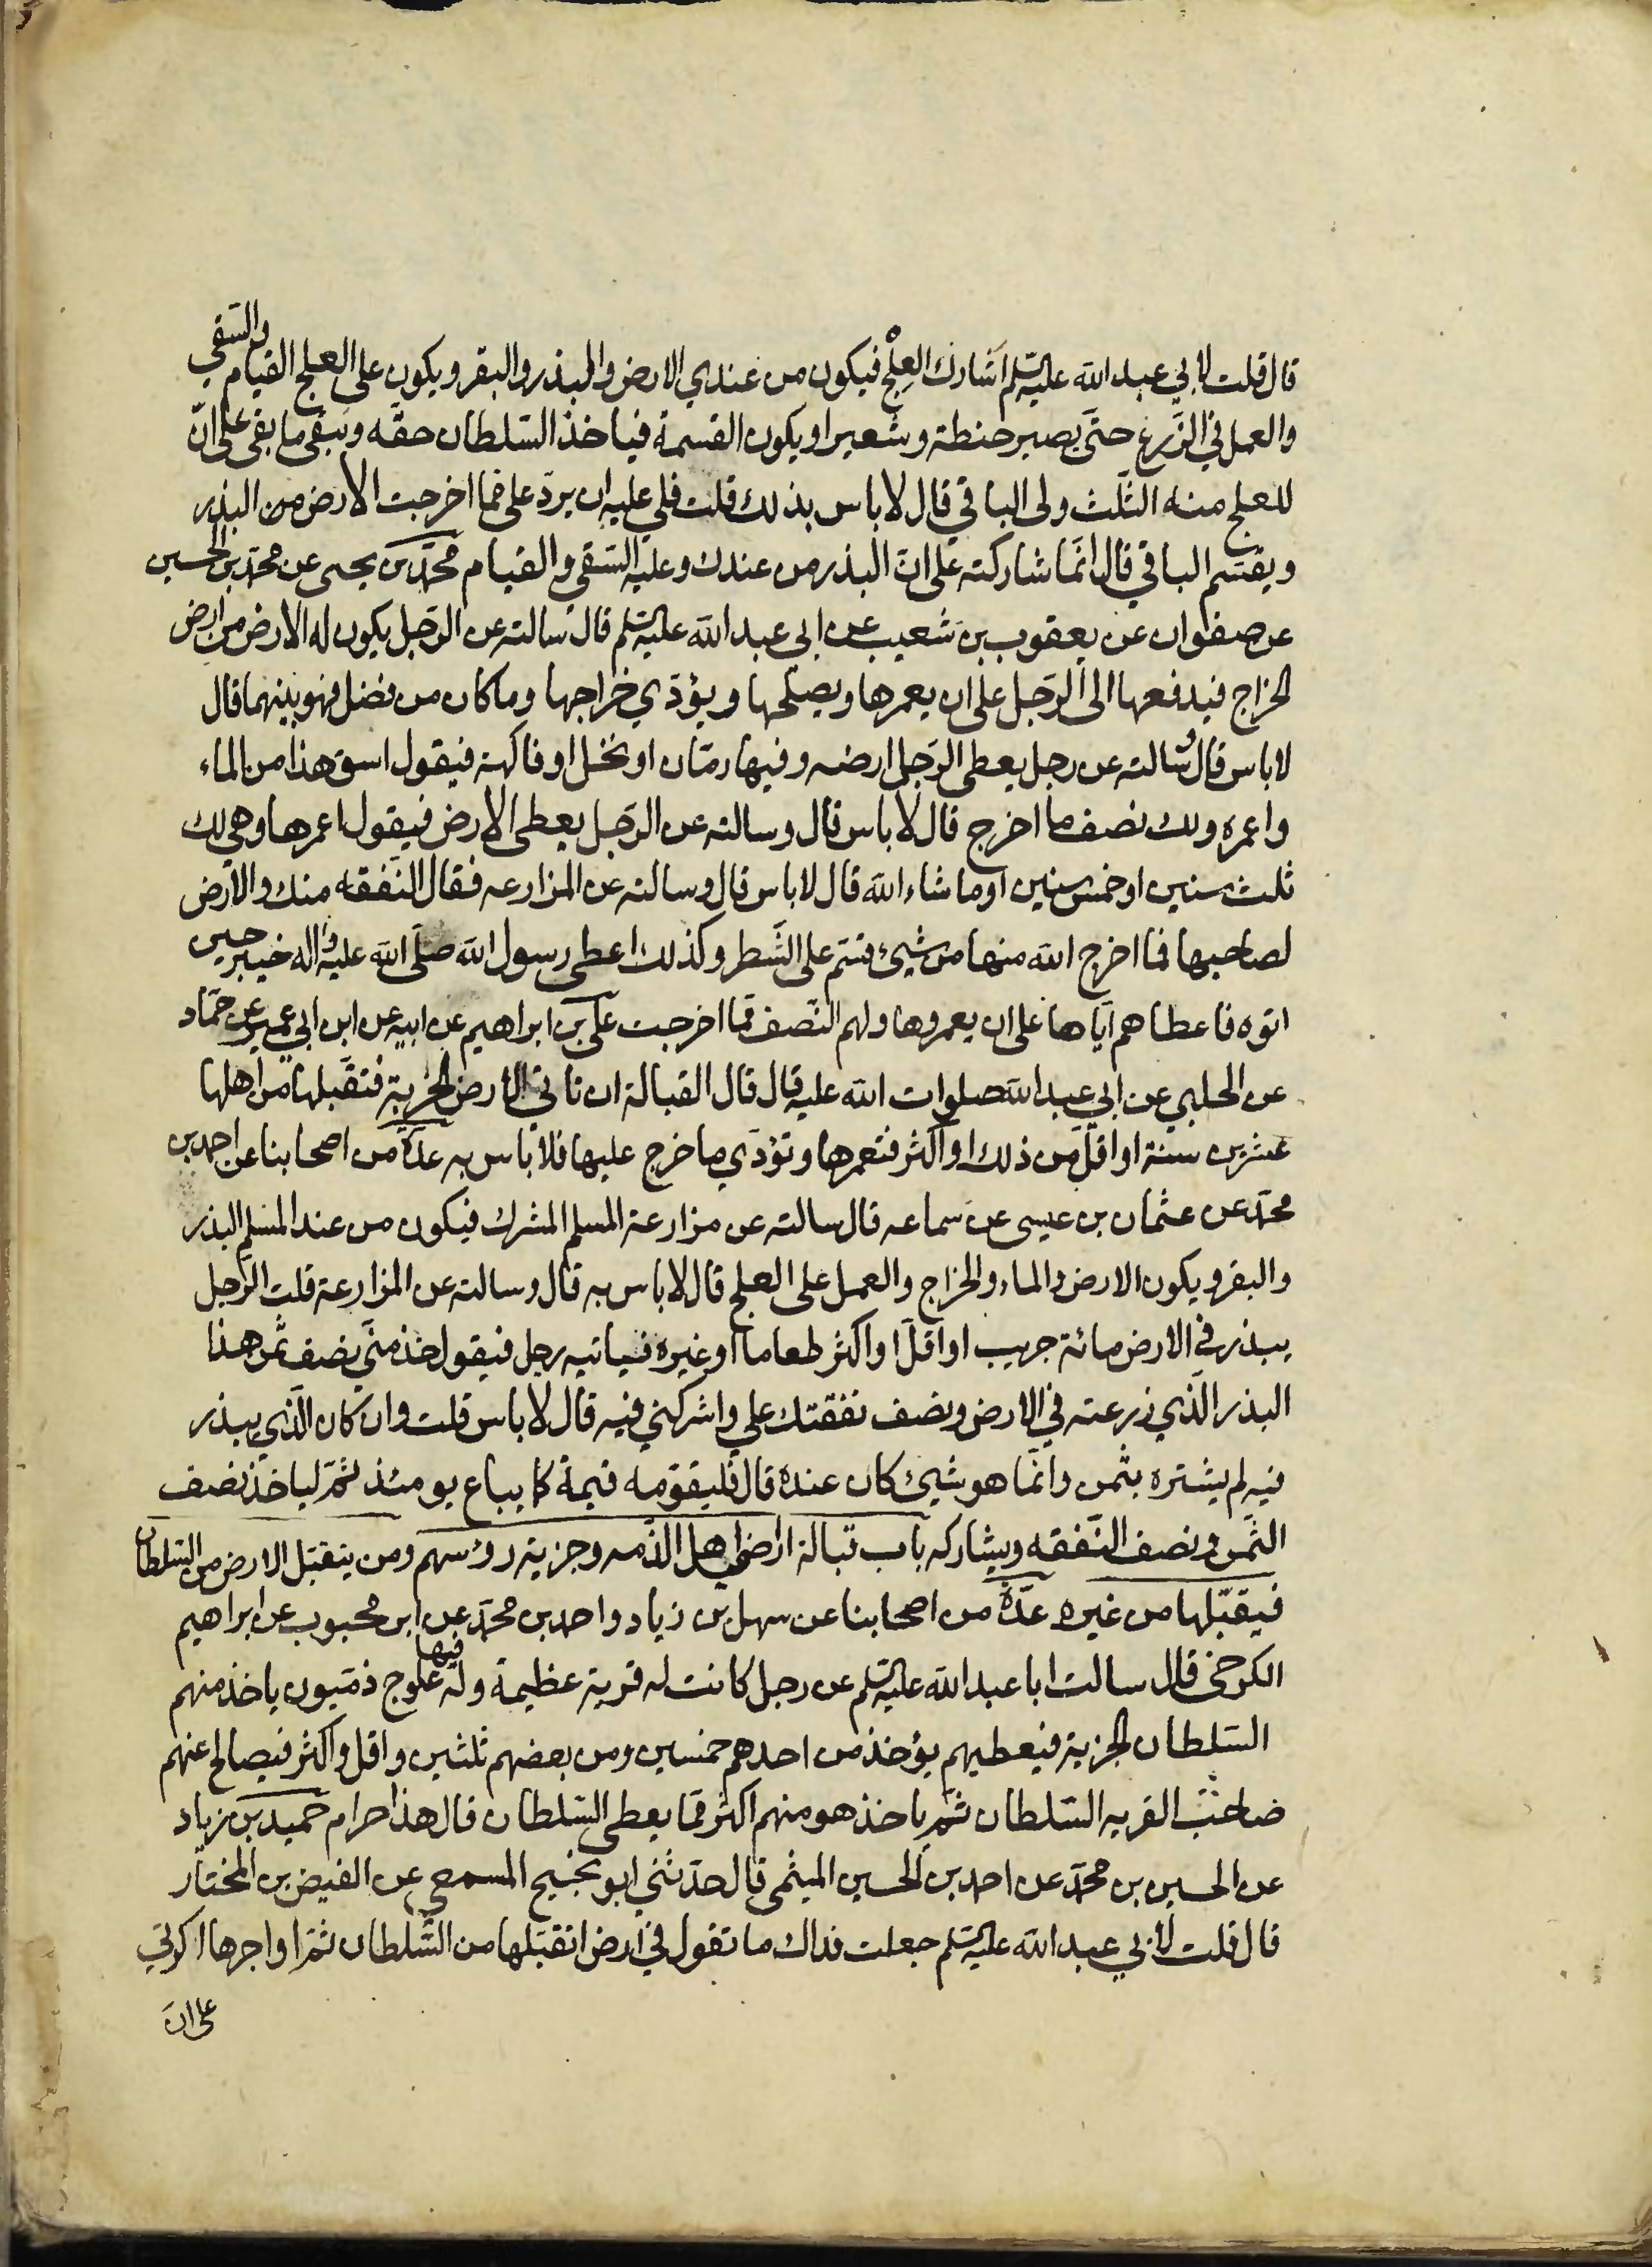 قال قلت لابي عبد الله عليه السلم اشارك العلج فيكون من عندي الارض والبذر والبقر ويكون على العلج القيام والسقي
والعمل في الزرع حتى يصير حنطة وشعيرا ويكون القسمة فياخذ السلطان حقه ويبقى ما بقى على انّ
للعلج منه الثلث ولى الباقي قال لا باس بذلك قلت فلي عليه ان يردّ على مما اخرجت الارض من البذر
ويقسم الباقي قال انّما شاركته على انّ البذر من عندك وعليه السّقي والقيام محمّد بن يحيى عن محمد بن الحسين
عن صفوان عن يعقوب بن شعيب عن ابى عبد الله عليه السلم قال سالته عن الرّجل يكون له الارض من ارض
الخراج فيدفعها الى الرّجل على ان يعمرها ويصلحها ويؤدّي خراجها وما كان من فضل فهو بينهما قال
لا باس قال وسالته عن رجل يعطى الرّجل ارضه وفيها رمّان او نخل او فاكهة فيقول اسق هذا من الماء
واعمره ولك نصف ما اخرج قال لا باس قال وسالته عن الرّجل يعطى الارض فيقول اعمرها وهى لك
ثلث سنين او خمس سنين او ما شاء الله قال لا باس قال وسالته عن المزارعه فقال النّفقه منك والارض
لصاحبها فما اخرج الله منها من شيئ قسم على الشّطر وكذلك اعطى رسول الله صلّى الله عليه واله خيبر حين
اتوه فاعطاهم ايّاها على ان يعمروها ولهم النّصف ممّا اخرجت علىّ بن ابراهيم عن ابيه عن ابن ابي عمير عن حمّاد
عن الحلبي عن ابي عبد الله صلوات الله عليه قال قال القبالة ان تاتي الارض الخربة فتقبّلها من اهلها
عشرين سنة او اقلّ من ذلك او اكثر فتعمرها وتؤدّي ما خرج عليها فلا باس به عدّة من اصحابنا عن احمد بن
محمّد عن عثمان بن عيسى عن سماعه قال سالته عن مزارعة المسلم المشرك فيكون من عند المسلم البذر
والبقر ويكون الارض والماء والخراج والعمل على العلج قال لا باس به قال وسالته عن المزارعة قلت الرّجل
يبذر في الارض مائة جريب او اقلّ او اكثر طعاما او غيره فياتيه رجل فيقول خذ منّي نصف ثمن هذا
البذر الّذي زرعته في الارض ونصف نفقتك علي واشركني فيه قال لا باس قلت وان كان الّذي يبذر
فيه لم يشتره بثمن وانّما هو شيئ كان عنده قال فليقوّمه قيمة كما يباع يومئذ ثمّ لياخذ نصف
الثّمن ونصف النّفقه ويشاركه باب قبالة اراضي اهل الذّمه وجزية رؤسهم ومن يتقبّل الارض من السّلطان
فيقبّلها من غيره عدّة من اصحابنا عن سهل بن زياد واحمد بن محمّد عن ابن محبوب عن ابراهيم
الكرخى قال سالت ابا عبد الله عليه السلم عن رجل كانت له قرية عظيمة وله فيها علوج ذمّيون ياخذ منهم
السّلطان الجزية فيعطيهم يؤخذ من احدهم خمسين ومن بعضهم ثلثين واقل واكثر فيصالح عنهم
صاحب القريه السّلطان ثمّ ياخذ هو منهم اكثر ممّا يعطى السّلطان قال هذا حرام حميد بن زياد
عن الحسين بن محمّد عن احمد بن الحسين الميثمى قال حدّثني ابو نجيح المسمعي عن الفيض بن المختار
قال قلت لابي عبد الله عليه السلم جعلت فداك ما تقول في ارض اتقبّلها من السّلطان ثمّ اواجرها اكرتي
على انّ